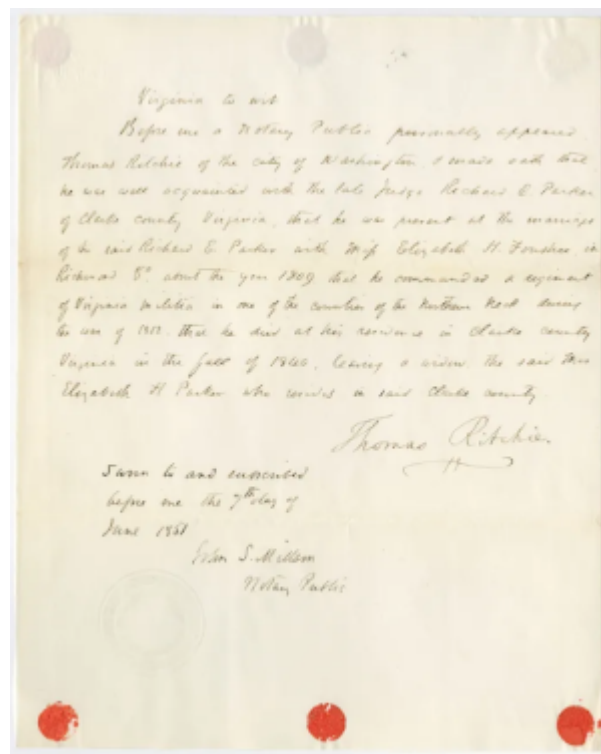 Virginia to wit
Before me a Notary Public personally appeared
Thomas Ritchie of the city of Washington & made oath that
he was well acquainted with the late Judge Richard E. Parker
of Clarke county Virginia, that he was present at the marriage
of the said Richard E. Parker with Miss Elizabeth H. Foushee, in
Richmond Va. about the year 1809, that he commanded a regiment
of Virginia militia in one of the counties of the Northern Neck during
the war of 1812, that he died at his residence in Clarke county
Virginia in the fall of 1840, leaving a widow, the said
Elizabeth H Parker who resides in said Clarke county.
Thomas Ritchie
Sworn to and subscribed
before me the 7th day of
June 1851
John S.
Notary Public